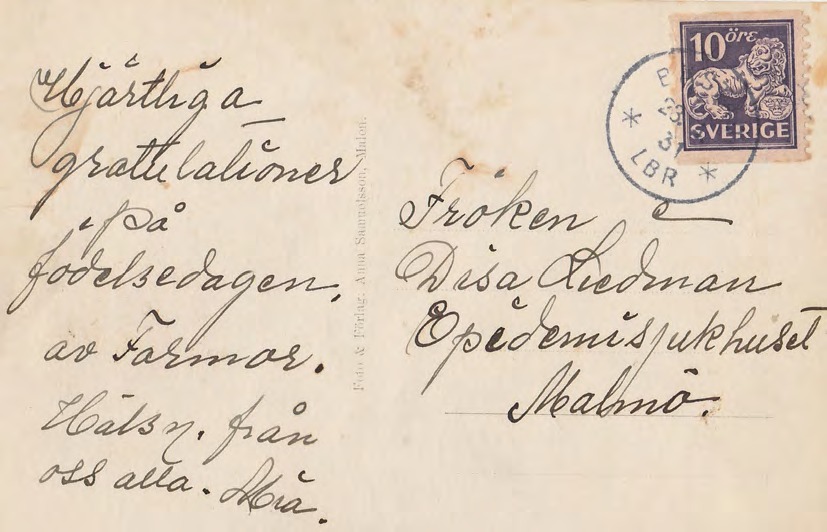 Hjärtliga
gratulationer
på
födelsedagen.
av Farmor.
Hälsn. från
oss alla.
Foto & Förlag. Anna Samuelsson, Malen.
10 öre
SVERIGE
31
LBR
Fröken
Disa Liedman
Epidemisjukhuset
Malmö.